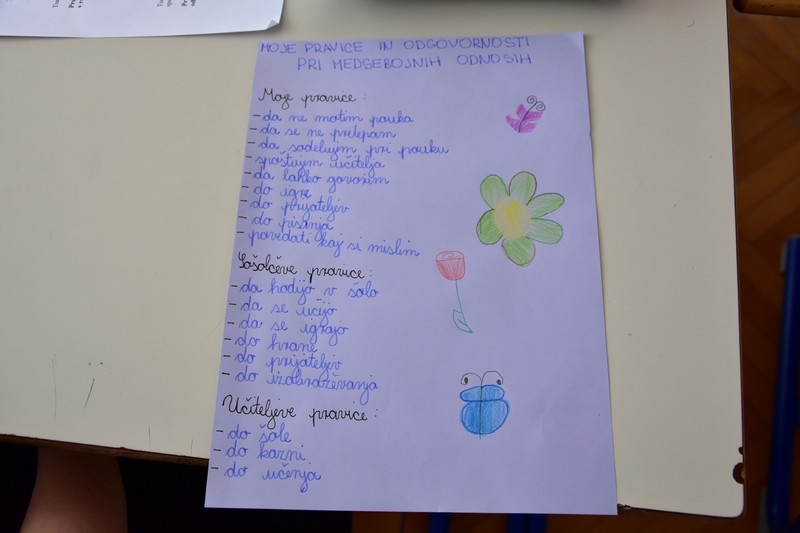 MOJE PRAVICE IN ODGOVORNOSTI
PRI MEDSEBOJNIH ODNOSIH
Moje pravice:
- da ne motim pouka
- da se ne pretepam
- da sodelujem pri pouku
- spoštujem učitelja
- da lahko govorim
- do igre
- do prijateljev
- do pisanja
- povedati kaj si mislim
Sošolčeve pravice:
- da hodijo v šolo
- da se učijo
- da se igrajo
- do hrane
- do prijateljev
- do izobraževanja
Učiteljeve pravice:
- do šole
- do kazni
- do učenja